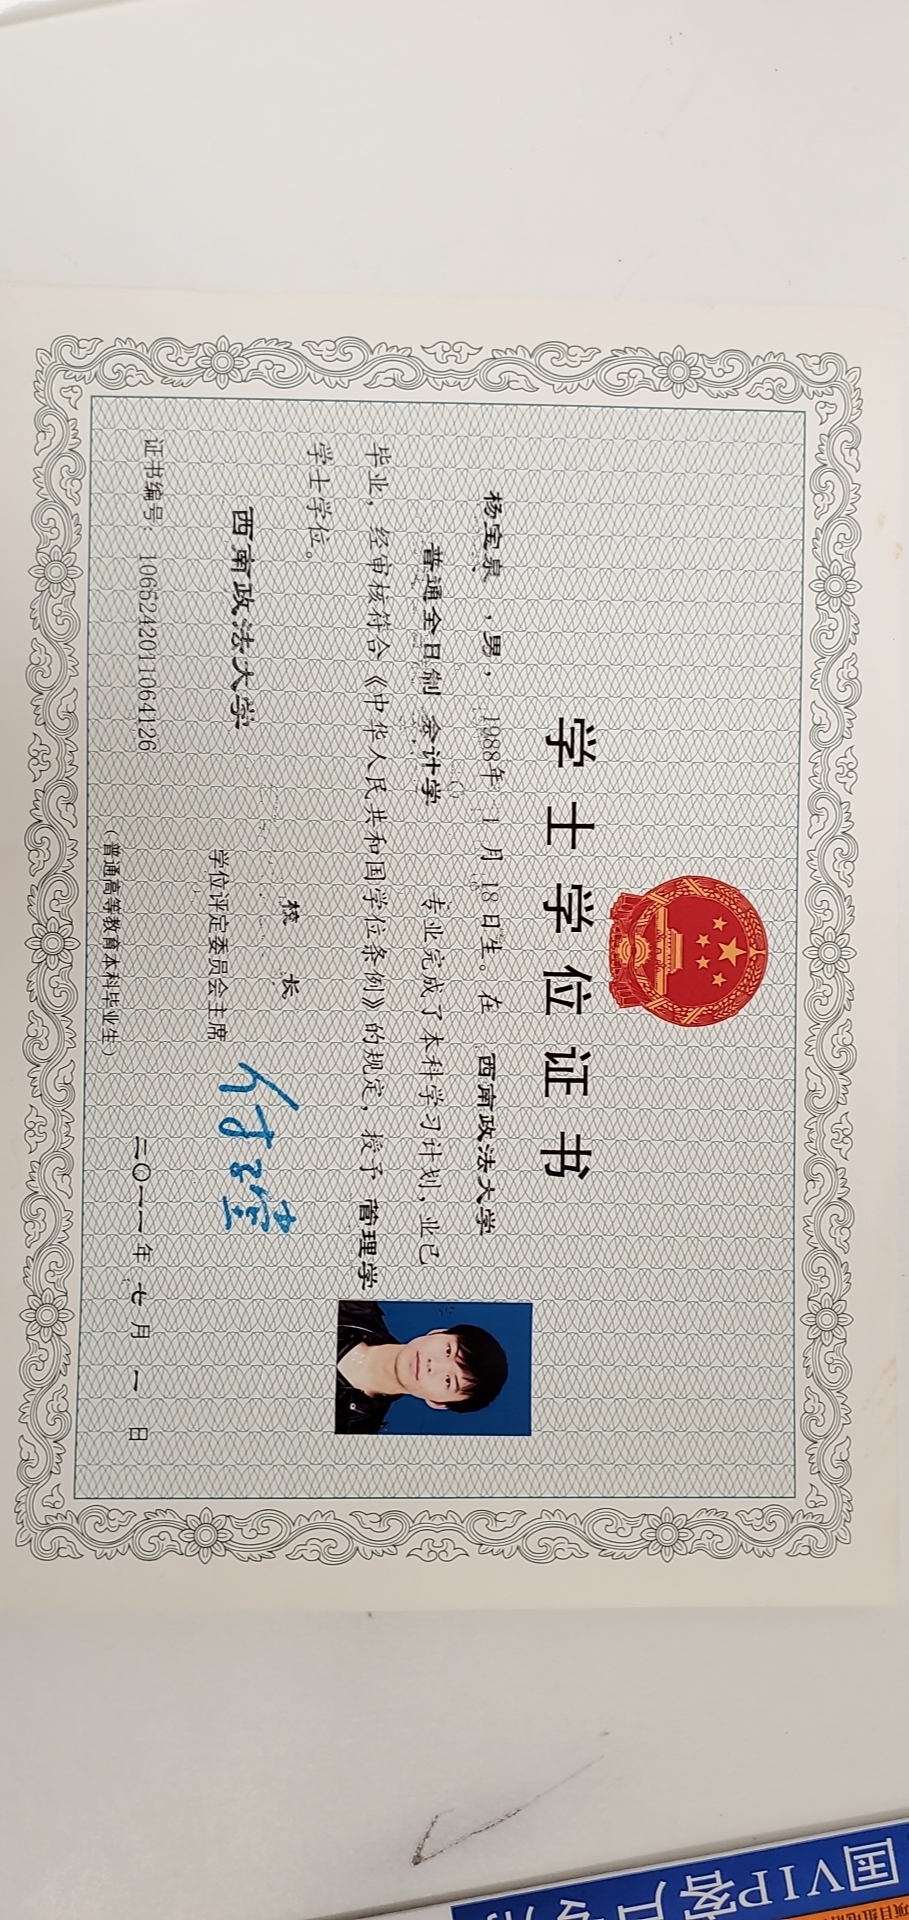 学士学位证书
杨宝泉，男，1988年1月18日生。在 西南政法大学
普通全日制 会计学 专业完成了本科学习计划，业已
毕业，经审核符合《中华人民共和国学位条例》的规定，授予 管理学
学士学位。
西南政法大学
校 长
学位评定委员会主席
证书编号：1065242011064126
二〇一一年 七月 一 日
（普通高等教育本科毕业生）
国VIP客户专